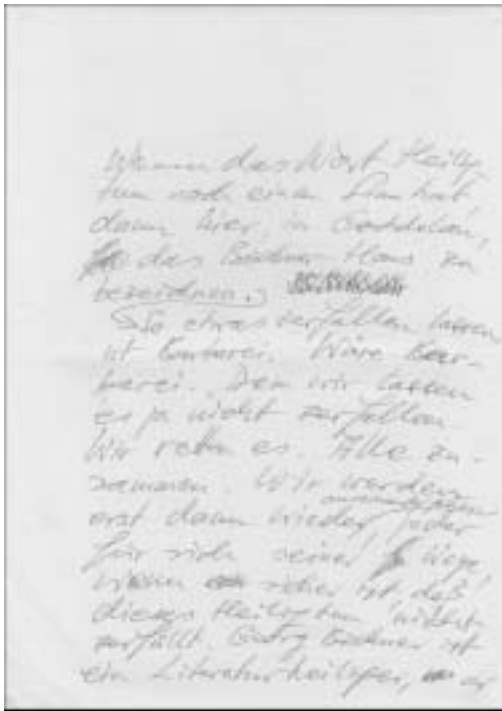 Wenn das Wort Heilig-
tum noch einen Sinn hat,
dann hier, in Goddelau,
das Büchner-Haus zu
bezeichnen.
So etwas verfallen lassen
ist Barbarei. Wäre Bar-
barei. Den wir lassen
es ja nicht zerfallen
Wir retten es. Alle zu-
sammen. Wir werden
erst dann wieder jeder
für sich seiner Wege,
wenn sicher ist, daß
dieses Heiligtum nicht
zerfällt. Georg Büchner ist
ein Literaturheiliger, er